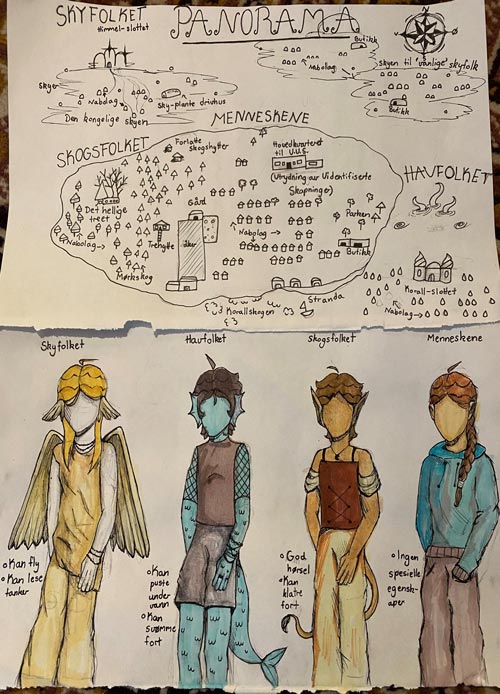 SKYFOLKET
Himmel-slottet
PANORAMA
Butikk
Nabolag
Skyen til 'vanlige' skyfolk
Skyer
Nabolag
Sky-plante drivhus
Den kongelige skyen
Butikk
MENNESKENE
SKOGSFOLKET
Forlatte
Skogshytter
Hovedkvarteret
til U.U.S.
(Utrydning av Uidentifiserte
Skapninger)
HAVFOLKET
Det hellige
treet
Gård
Parken
Nabolag
Nabolag
Trehytte
åker
Butikk
Mørkskog
Korall-slottet
Stranda
Korallskogen
Nabolag
Skyfolket
Havfolket
Skogsfolket
Menneskene
Kan fly
Kan lese
tanker
Kan
puste
under
vann
Kan
svømme
fort
God
hørsel
Kan
klatre
fort
Ingen
spesielle
egensk-
aper